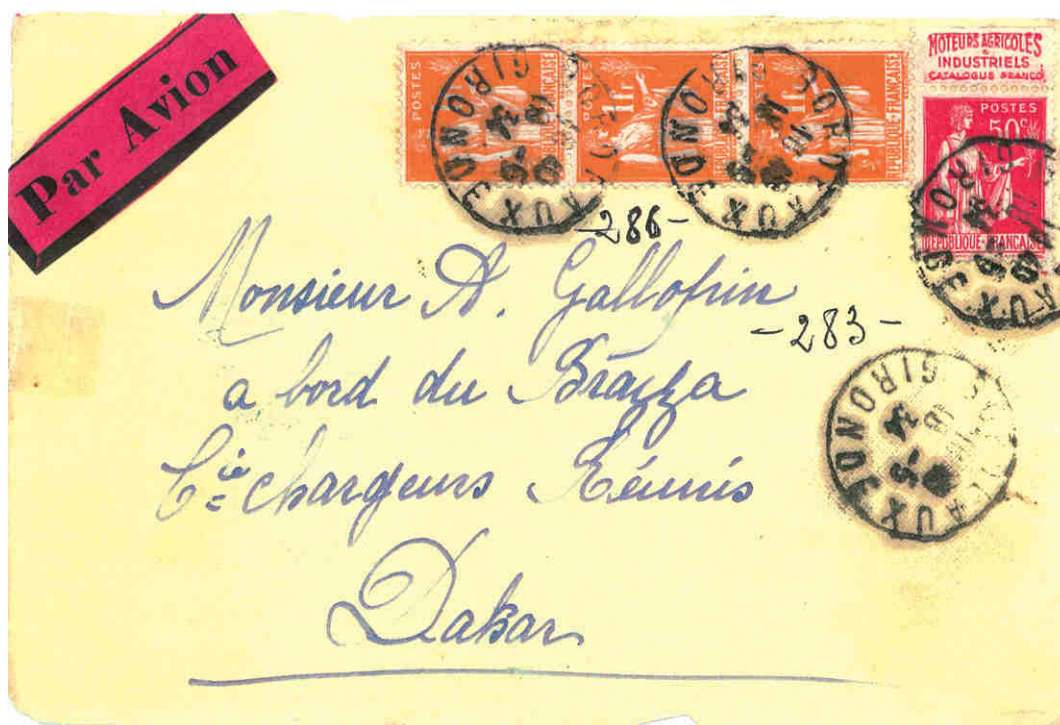 Par Avion
POSTES
1F
RÉPUBLIQUE-FRANÇAISE
MOTEURS AGRICOLES
&
INDUSTRIELS
CATALOGUE FRANCO
POSTES
50c
RÉPUBLIQUE-FRANÇAISE
GIRONDE
34
GIRONDE
34
-286-
Monsieur A. Gallofrin
-283-
a bord du Brazza
GIRONDE
34
Cie Chargeurs Réunis
Dakar